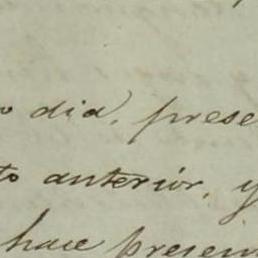 o dia, prese
to anterior, y
hace presen